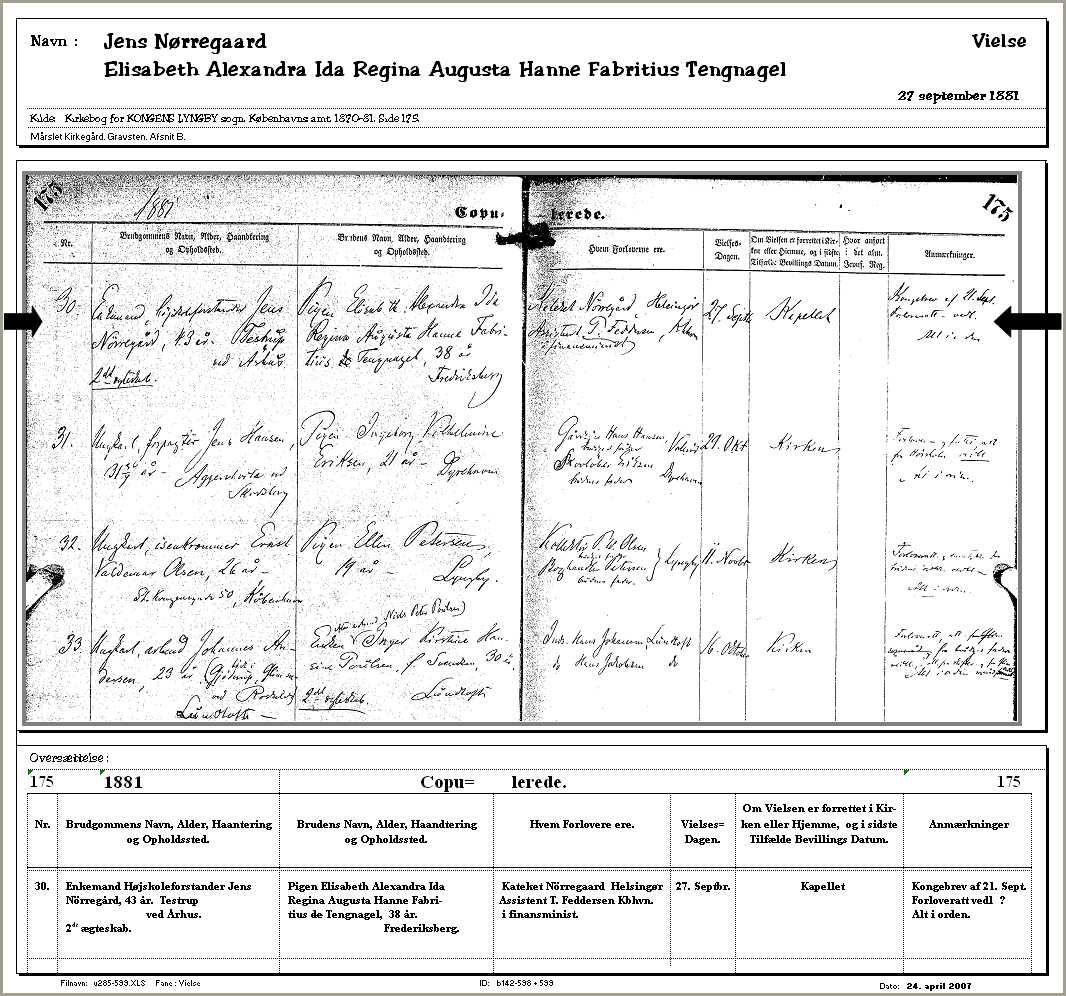 Navn : Jens Nørregaard Vielse
Elisabeth Alexandra Ida Regina Augusta Hanne Fabritius Tengnagel
27 september 1881
Kilde: Kirkebog for KONGENS LYNGBY sogn. Københavns amt. 1870-81. Side 175.
Mårslet Kirkegård. Gravsten. Afsnit B.
175 1881 Copu- lerede. 175
Nr. Brudgommens Navn, Alder, Haandtering og Opholdssted. Brudens Navn, Alder, Haandtering og Opholdssted. Hvem Forloverne ere. Vielses-Dagen. Om Vielsen er forrettet i Kirken eller Hjemme, og i sidste Tilfælde Bevillings Datum. Hvor anført i det alm. Jevnf. Reg. Anmærkninger.
30. Enkemand, højskoleforstander Jens Pigen Elisabeth Alexandra Ida Kateket Nörregård, Helsingør 27. Septbr Kapellet Kongebrev af 21. Sept.
Nörregård, 43 år. Testrup Regina Augusta Hanne Fabri- Assistent T. Feddersen, Kbhvn
ved Århus tius de Tengnagel, 38 år i finansminist. Alt i orden
2det ægteskab. Fredriksberg
31. Ungkarl, forpagter Jens Hansen, Pigen Ingeborg Vilhelmine Hans Hansen, 21. Okt Kirken
31 år - Eriksen, 21 år - Dyrehaven
Skodsborg brudens fader Dyrehaven Alt i orden.
32. Ungkarl, isenkræmmer Ernst Pigen Ellen Petersen, P. W. Olsen 11. Novbr Kirken
Valdemar Olsen, 26 år - 19 år - Lyngby. Petersen Lyngby
St. Kongensgade 50, København brudens fader. Alt i orden.
33. Ungkarl, Johannes An- Enken Inger Kirstine Han- Hans Johansen, Lundtofte 16. Oktober Kirken
dersen, 23 år sine f. Svendsen, 30 år. do Hans Jakobsen do
Lundtofte - 2det ægteskab. Lundtofte Alt i orden
Oversættelse :
175 1881 Copu= lerede. 175
Nr. Brudgommens Navn, Alder, Haantering Brudens Navn, Alder, Haandtering Hvem Forlovere ere. Vielses= Om Vielsen er forrettet i Kir- Anmærkninger
og Opholdssted. og Opholdssted. Dagen. ken eller Hjemme, og i sidste
Tilfælde Bevillings Datum.
30. Enkemand Højskoleforstander Jens Pigen Elisabeth Alexandra Ida Kateket Nörregaard Helsingør 27. Septbr. Kapellet Kongebrev af 21. Sept.
Nörregård, 43 år. Testrup Regina Augusta Hanne Fabri- Assistent T. Feddersen Kbhvn. Forloveratt vedl ?
ved Århus. tius de Tengnagel, 38 år. i finansminist. Alt i orden.
2de ægteskab. Frederiksberg.
Filnavn: u285-599.XLS Fane : Vielse ID: b142-598 + 599 Dato: 24. april 2007